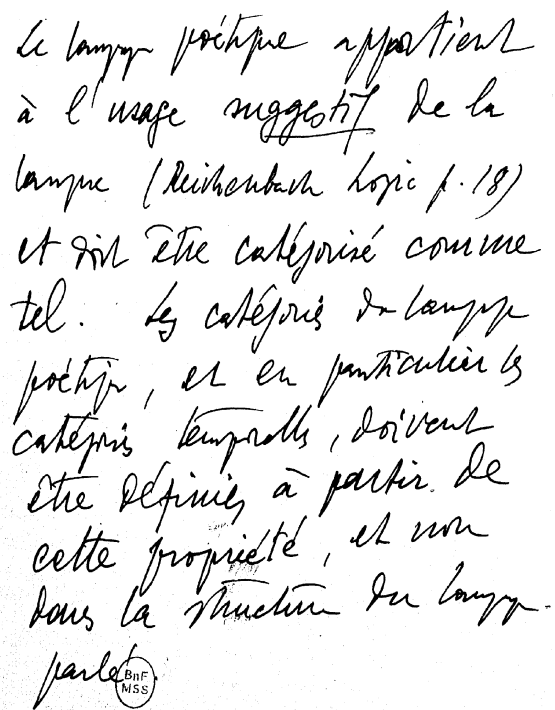 Le langage poétique appartient
à l'usage suggestif de la
langue (Reichenbach Logic p. 18)
et doit être catégorisé comme
tel. Les catégories du langage
poétique, et en particulier les
catégories temporelles, doivent
être définies à partir de
cette propriété, et non
dans la structure du langage
parlé.
BnF
MSS